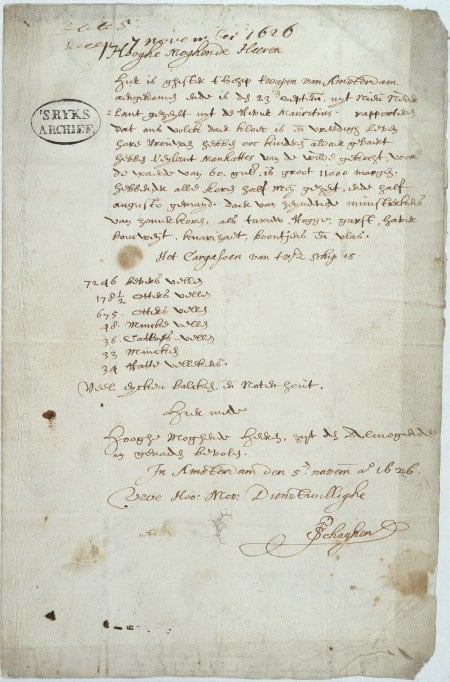 7 novem 1626
Hooghe Moghende Heeren
Hier is ghister t'schip t'wapen van Amsterdam
aengekomen ende is den 23en septem. uyt Nieu Neder
Lant gezeylt uyt de Rivier Mauritius. rapporteren
dat ons volck daer kloec is en vreedigh leven
hare Vrouwen hebben ooc kinderen aldaer gebaert
hebben t'eylant Manhattes van de wilde gekocht voor
de waerde van 60 guld. is groot 11000 morgen.
hebbende alle koren half Mey gezeyt, ende half
augusto gemayd. daer van zeynden munsterkens
van zomerkoren, als tarwe, Rogge, garst, haver
boucweyt, knarizaet, boontjens en vlas.
Het Cargasoen van tsz. schip is
'SRYKS ARCHIEF
7246 bevers vellen
178½ otters vellen
675 otters vellen
48 Mincke vellen
36 Catloes vellen
33 Mincken
34 Ratte vellekens.
Veel eycken balcken, en Noten hout.
Hier mede
Hooghe Moghende Heeren, zijt den Almogende
in genaden bevolen
In Amsterdam den 5en novem ao 1626.
Uwe Hoo: Moo: Dienstwillighe
P Schaghen